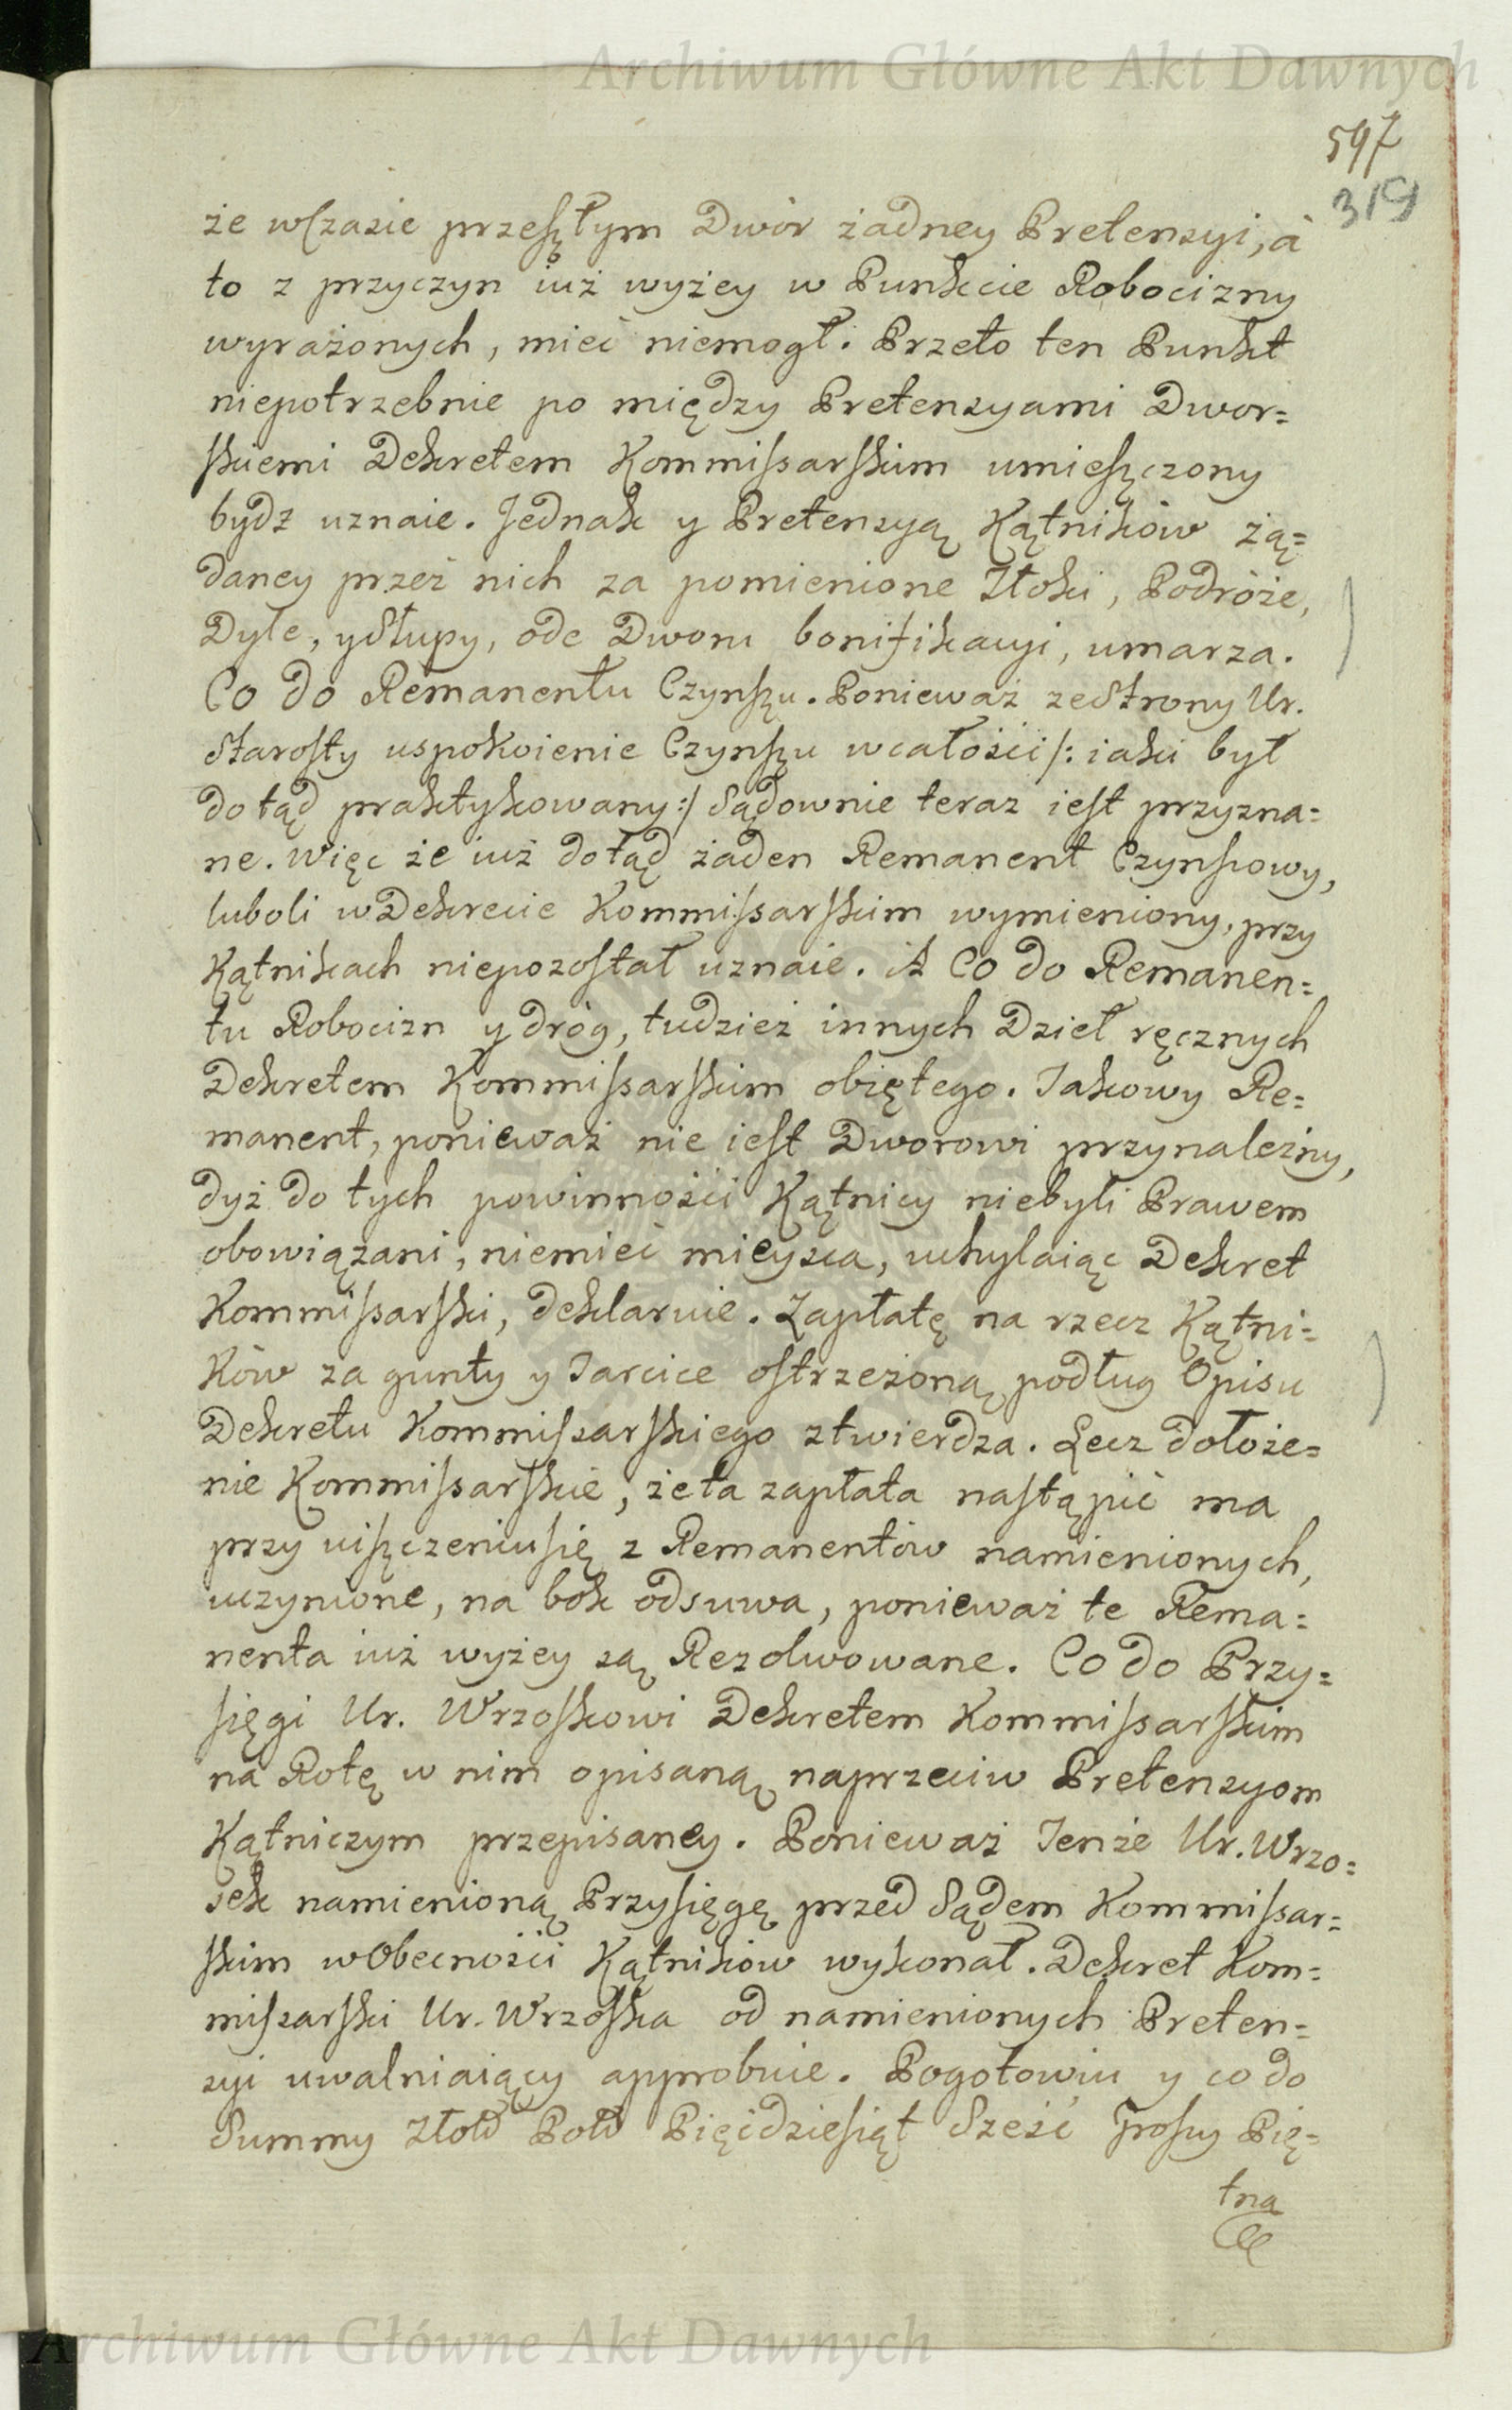 Archiwum Główne Akt Dawnych
597
319
że wczasie przeszłym Dwór żadney Pretensyi, à
to z przyczyn iuż wyżey w Punkcie Robocizny
wyrażonych, mieć niemogł. Przeto ten Punkt
niepotrzebnie po między Pretensyami Dwor=
skiemi Dekretem Kommissarskim umieszczony
bydź uznaie. Jednak y Pretensyą Kątników żą=
daney przez nich za pomienione Tłoki, Podróże,
Dyle, y Słupy, ode Dworu bonifikacyi, umarza.
Co do Remanentu Czynszu. Ponieważ ze Strony Ur.
Starosty uspokoienie Czynszu wcałości /: iaki był
do tąd praktykowany :/ Sądownie teraz iest przyzna=
ne. Więc że iuż dotąd żaden Remanent Czynszowy,
luboli w Dekrecie Kommissarskim wymieniony, przy
Kątnikach niepozostał uznaie. A Co do Remanen=
tu Robocizn y dróg, tudzież innych Dzieł ręcznych
Dekretem Kommissarskim obiętego. Jakowy Re=
manent, ponieważ nie iest Dworowi przynależny,
dyż do tych powinności Kątnicy niebyli Prawem
obowiązani, niemieć mieysca, uchylaiąc Dekret
Kommissarski, deklaruie. Zapłatę na rzecz Kątni=
ków za gunty y Tarcice ostrzeżoną podług Opisu
Dekretu Kommissarskiego ztwierdza. Lecz dołoże=
nie Kommissarskie, że ta zapłata nastąpić ma
przy uiszczeniu się z Remanentów namienionych,
uczynione, na bok odsuwa, ponieważ te Rema=
nenta iuż wyżey są Rezolwowane. Co do Przy=
sięgi Ur. Wrzoskowi Dekretem Kommissarskim
na Rotę w nim opisaną naprzeciw Pretensyom
Kątniczym przepisaney. Ponieważ Tenże Ur. Wrzo=
sek namienioną Przysięgę przed Sądem Kommissar=
skim w Obecności Kątników wykonał. Dekret Kom=
missarski Ur. Wrzoska od namienionych Preten=
syi uwalniaiący approbuie. Pogotowiu y co do
Summy Złotd Pold Pięćdziesiąt Sześć Groszy Pię=
tna
Archiwum Główne Akt Dawnych